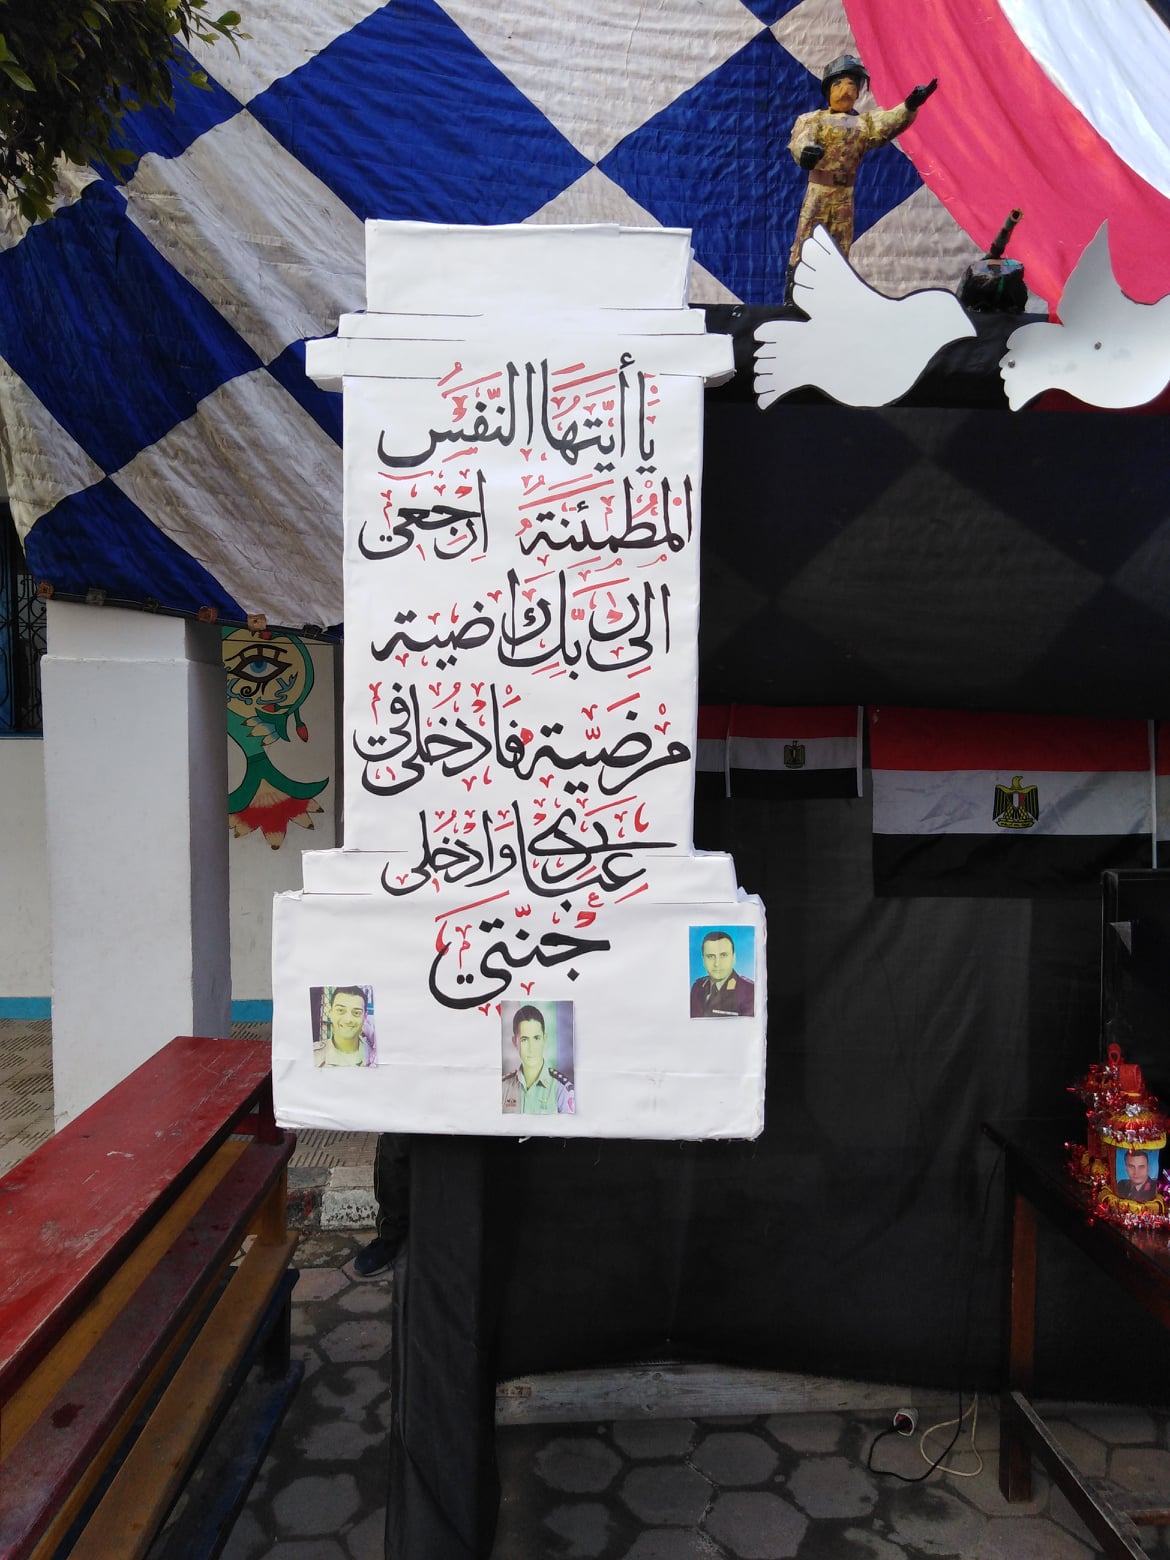 يَا أَيَّتُهَا النَّفْسُ
الْمُطْمَئِنَّةُ ارْجِعِي
إِلَى رَبِّكِ رَاضِيَةً
مَرْضِيَّةً فَادْخُلِي فِي
عِبَادِي وَادْخُلِي
جَنَّتِي